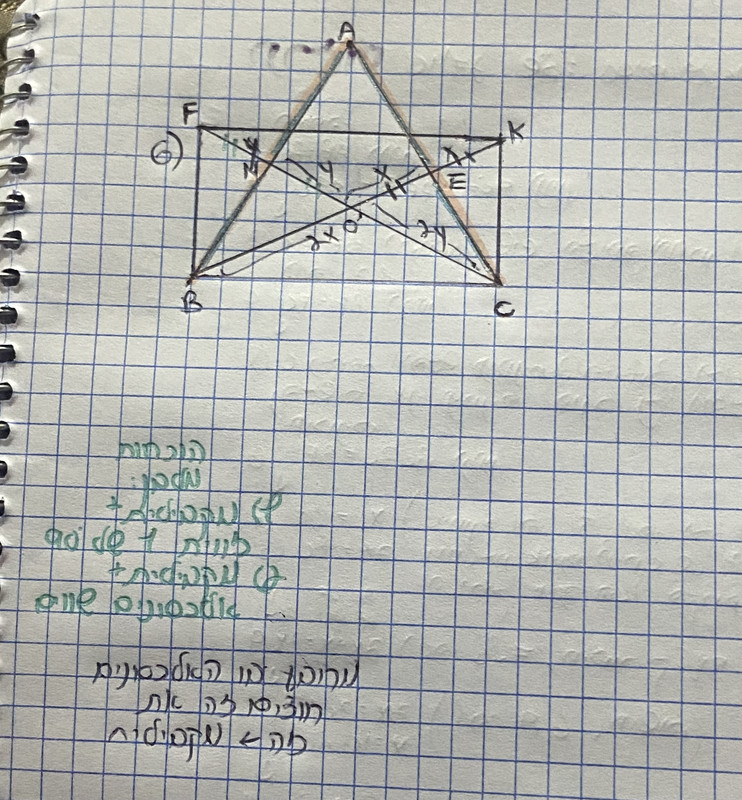 A
F
K
6)
y
M
y
x
x
E
2x
O
2y
B
C
הוכחות
מלבן:
1) מקבילית +
זווית 1 של 90°
2) מקבילית +
אלכסונים שווים
מרובע בו האלכסונים
חוצים זה את
זה ← מקבילית